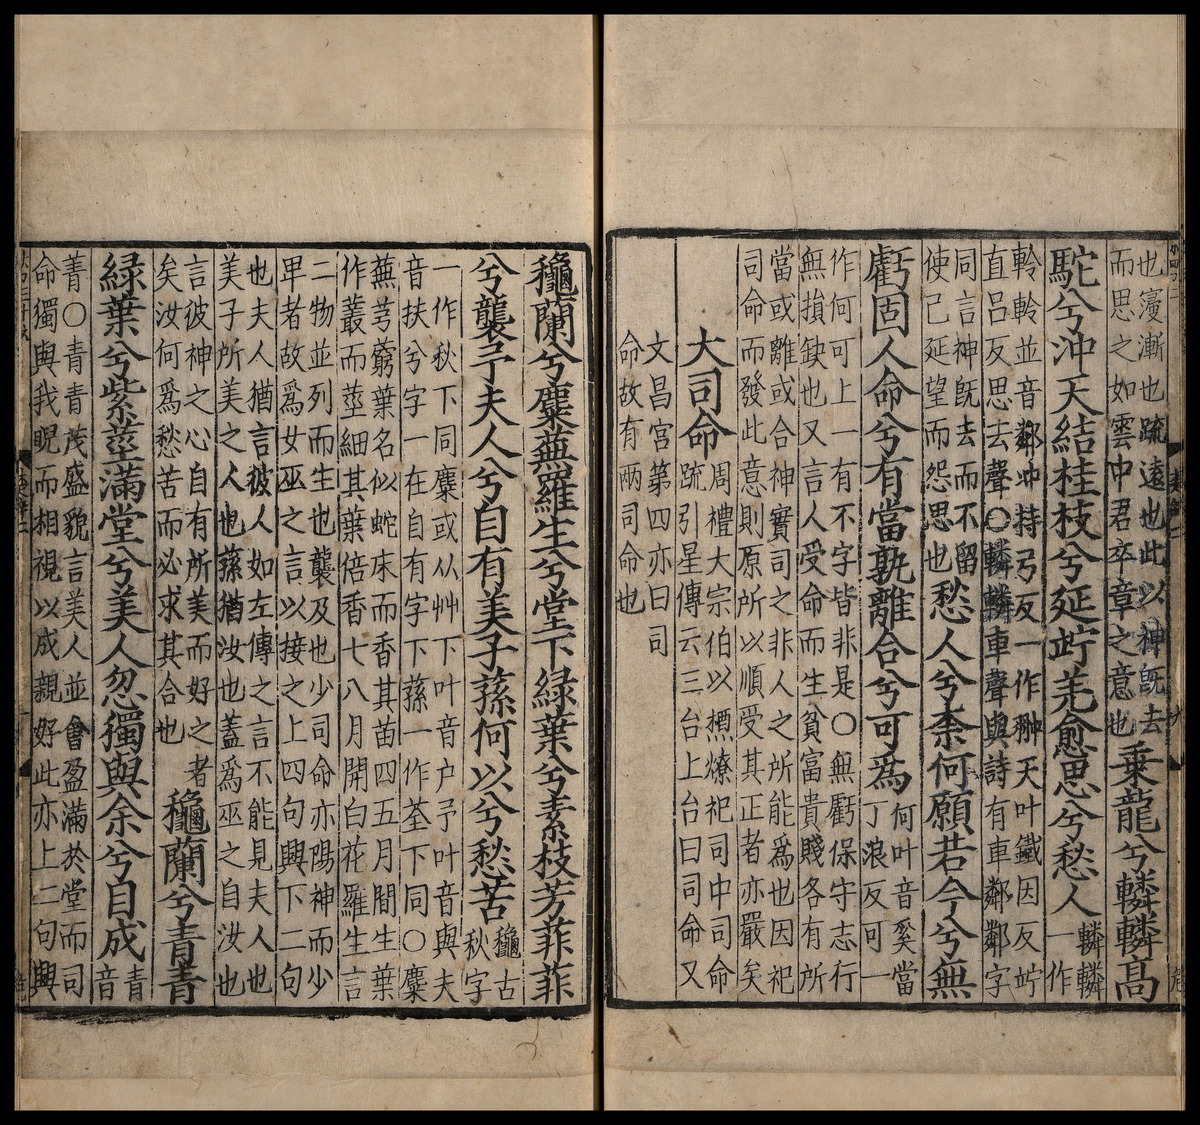 也寖漸也疏遠也此以神旣去
而思之如雲中君卒章之意也
乗龍兮轔轔高
駝兮沖天結桂枝兮延竚羌愈思兮愁人
轔轔
一作
軨軨並音鄰沖持弓反一作翀天叶鐵因反竚
直吕反思去聲○轔轔車聲與詩有車鄰鄰字
同言神旣去而不留
使己延望而怨思也
愁人兮柰何願若今兮無
虧固人命兮有當孰離合兮可爲
何叶音奚當
丁浪反可一
作何可上一有不字皆非是○無虧保守志行
無損缺也又言人受命而生貧富貴賤各有所
當或離或合神實司之非人之所能爲也因祀
司命而發此意則原所以順受其正者亦嚴矣
大司命
周禮大宗伯以槱燎祀司中司命
疏引星傳云三台上台曰司命又
文昌宫第四亦曰司
命故有兩司命也
穐蘭兮麋蕪羅生兮堂下緑葉兮素枝芳菲菲
兮襲予夫人兮自有美子蓀何以兮愁苦
穐古
秋字
一作秋下同麋或从艸下叶音户予叶音與夫
音扶兮字一在自有字下蓀一作荃下同○麋
蕪芎藭葉名似蛇床而香其苗四五月間生葉
作叢而莖細其葉倍香七八月開白花羅生言
二物並列而生也襲及也少司命亦陽神而少
卑者故爲女巫之言以接之上四句興下二句
也夫人猶言彼人如左傳之言不能見夫人也
美子所美之人也蓀猶汝也蓋爲巫之自汝也
言彼神之心自有所美而好之者
矣汝何爲愁苦而必求其合也
穐蘭兮青青
緑葉兮紫莖滿堂兮美人忽獨與余兮目成
青
音
菁○青青茂盛貌言美人並會盈滿於堂而司
命獨與我睨而相視以成親好此亦上二句興